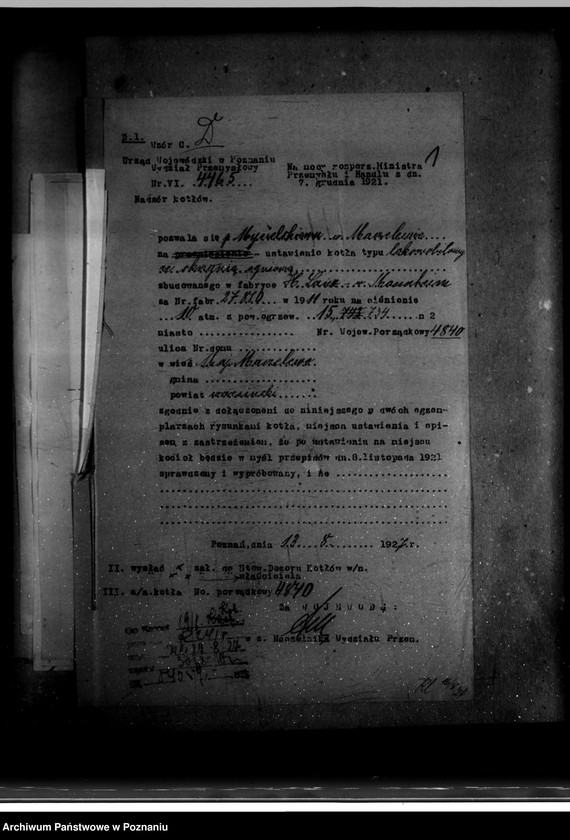 B.1.
Wzór C. D
Urząd Wojewódzki w Poznaniu
Wydział Przemysłowy
Nr.VI. 4465....
Nadzór kotłów.
1
Na mocy rozporz.Ministra
Przemysłu i Handlu z dn.
7. grudnia 1921.
pozwala się p Mycielskiemu w
na - ustawienie kotła typu lokomobilowy
ze skrzynią ogniową
zbudowanego w fabryce H. Lanz w Mannheim
za Nr.fabr. w 1911 roku na ciśnienie
...10.. atm. z pow.ogrzew. ..15, 734.....m 2
miasto ............... Nr. Wojew.Porządkowy 4840
ulica Nr.domu .............
w wieś Maj.
gmina ..................
powiat
zgodnie z dołączonemi do niniejszego w dwóch egzem-
plarzach rysunkami kotła, miejsca ustawienia i opi-
sem, z zastrzeżeniem, że po ustawieniu na miejscu
kocioł będzie w myśl przepisów dn.8.listopada 1921
sprawdzony i wypróbowany, i że ..................
Poznań,dnia 13...8......... 1927.r.
II. wysłać zał. do Stow.Dozoru Kotłów w/m.
właściciela
III. a/a.kotła No. porządkowy 4840
Za WOJEWODĘ:
w z. Naczelnika Wydziału Przem.
Archiwum Państwowe w Poznaniu